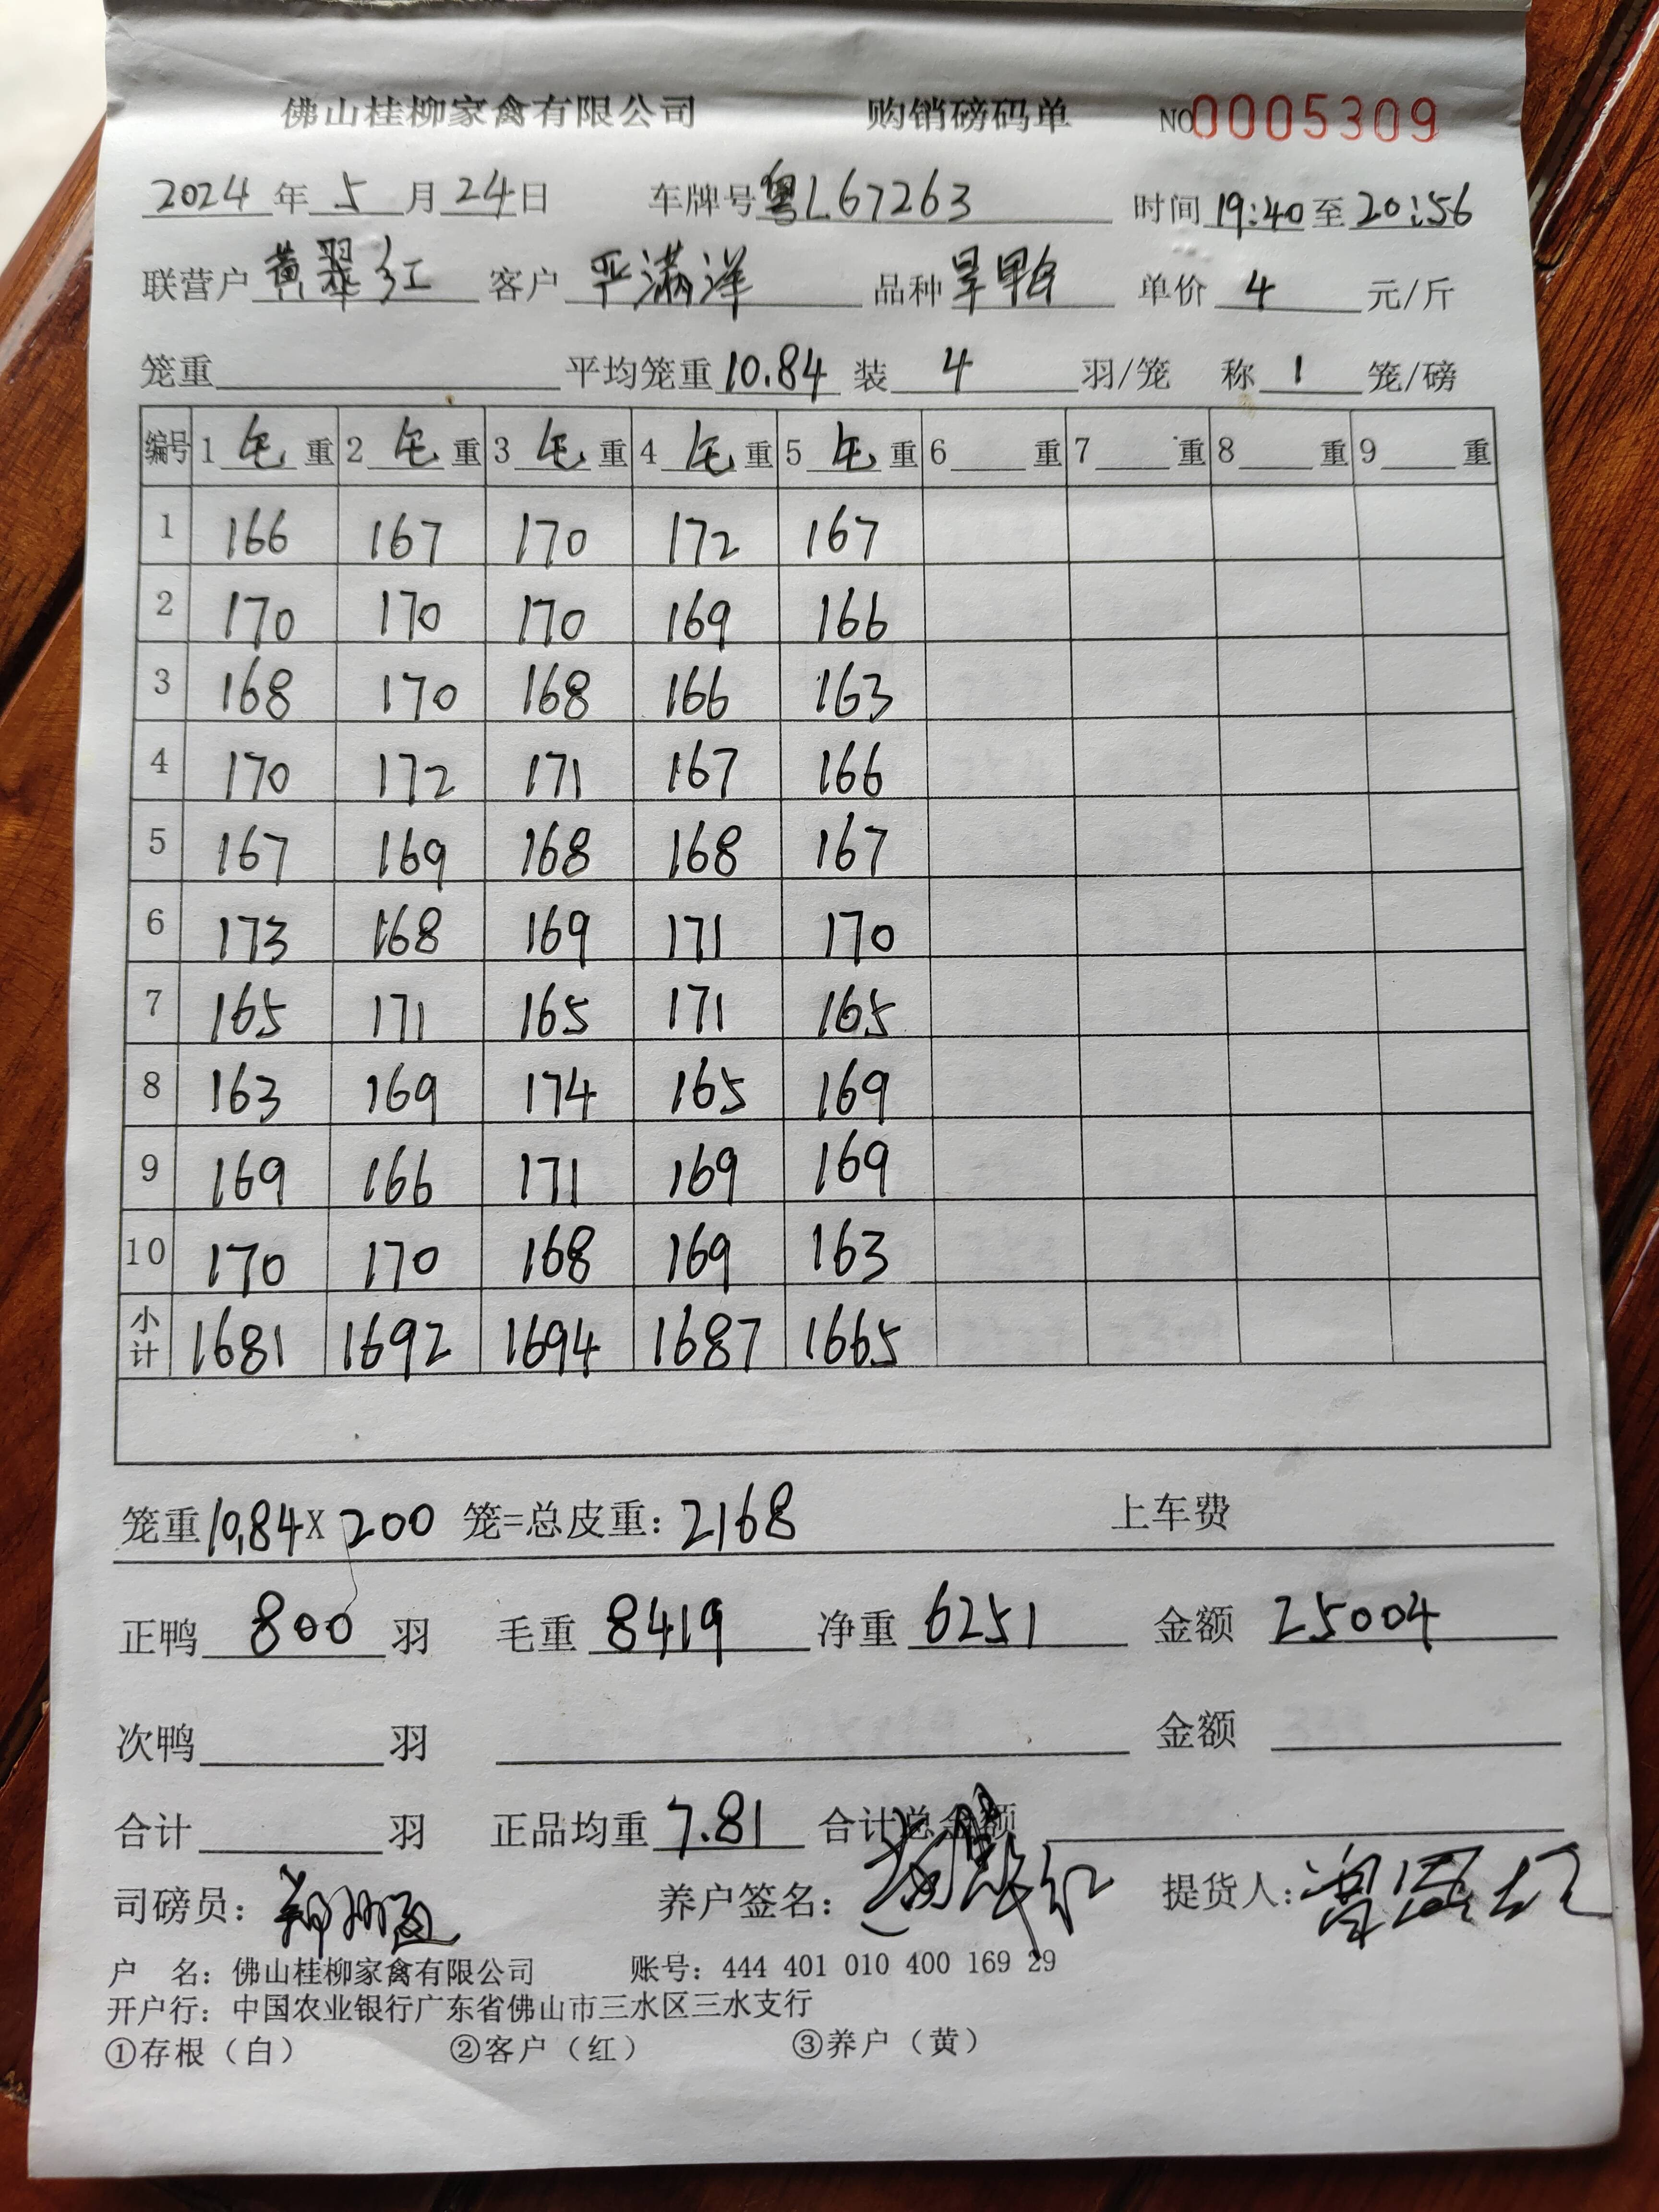 佛山桂柳家禽有限公司 购销磅码单 NO0005309
2024年5月24日 车牌号粤L67263 时间19:40至20:56
联营户黄翠红 客户严满洋 品种旱鸭 单价4元/斤
笼重 平均笼重10.84 装4羽/笼 称1笼/磅
编号 1毛重 2毛重 3毛重 4毛重 5毛重 6重 7重 8重 9重
1 166 167 170 172 167
2 170 170 170 169 166
3 168 170 168 166 163
4 170 172 171 167 166
5 167 169 168 168 167
6 173 168 169 171 170
7 165 171 165 171 165
8 163 169 174 165 169
9 169 166 171 169 169
10 170 170 168 169 163
小计 1681 1692 1694 1687 1665
笼重10.84X200笼=总皮重:2168 上车费
正鸭800羽 毛重8419 净重6251 金额25004
次鸭 羽 金额
合计 羽 正品均重7.81 合计总金额
司磅员: 养户签名: 提货人:
户 名:佛山桂柳家禽有限公司 账号:444 401 010 400 169 29
开户行:中国农业银行广东省佛山市三水区三水支行
①存根(白) ②客户(红) ③养户(黄)